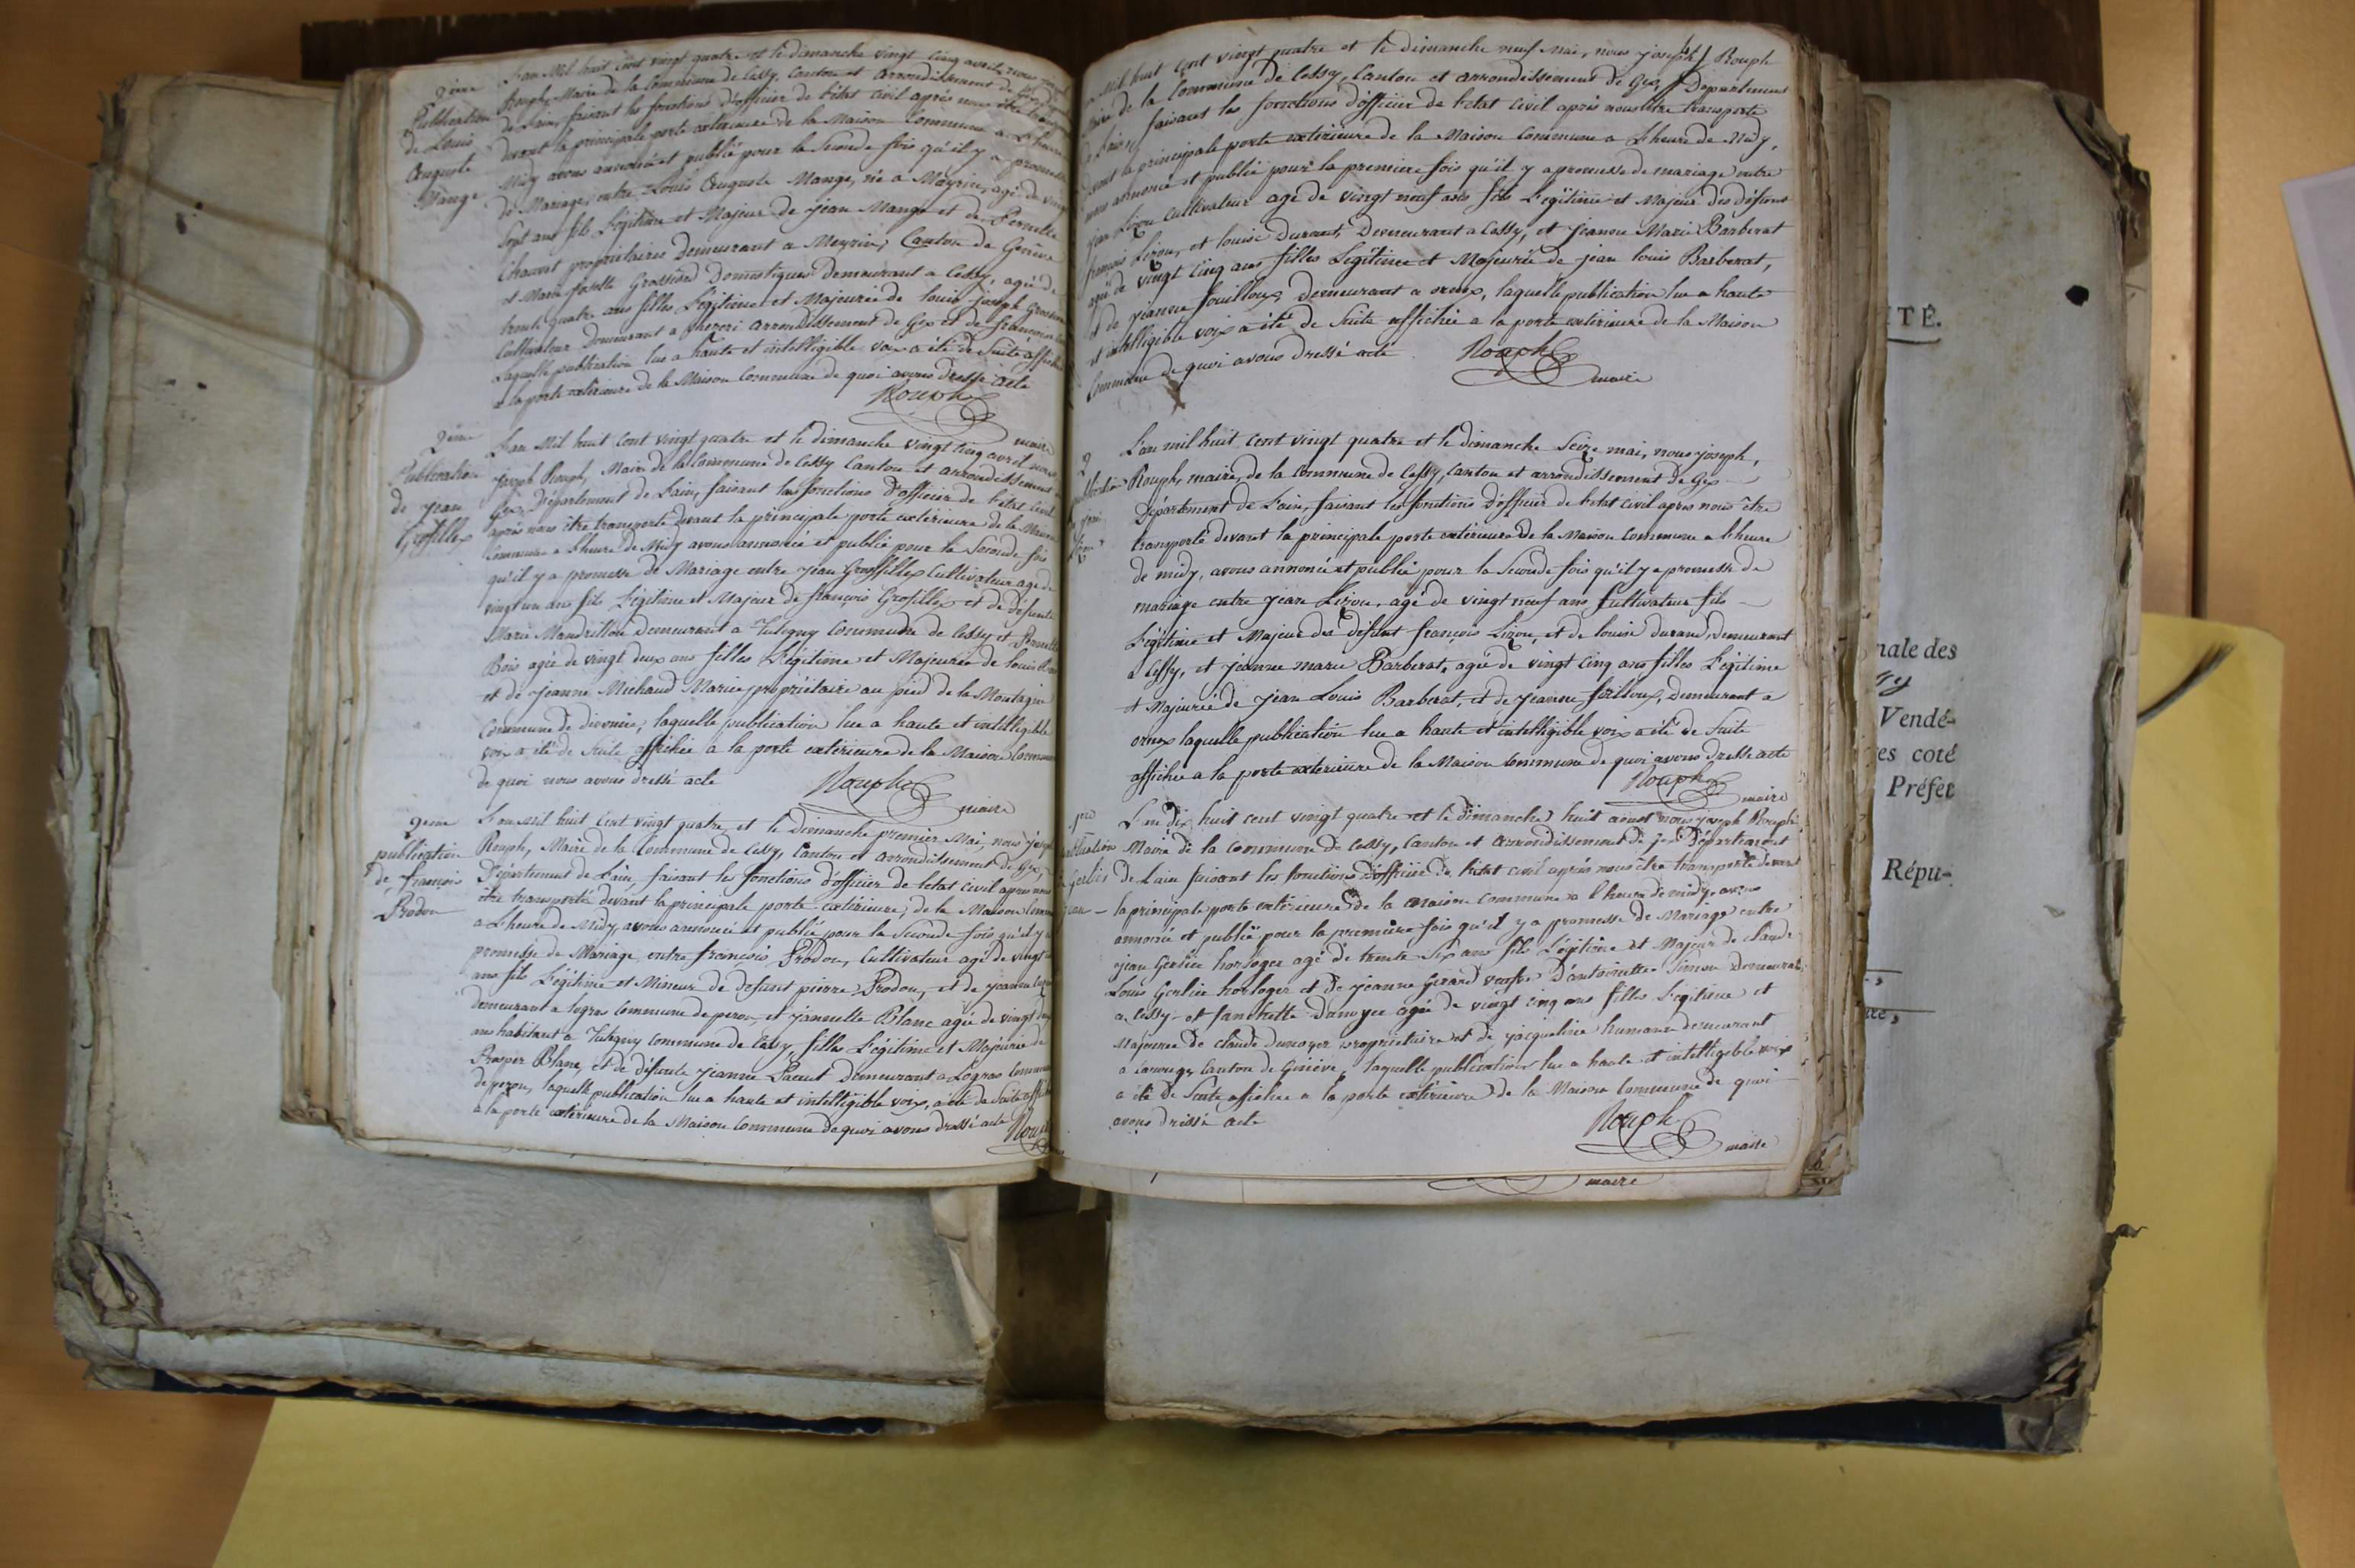 2eme
Publication
de Louis
Auguste
Mange
L'an Mil huit Cent vingt quatre et le dimanche vingt Cinq avril nous
Rouph, Maire de la Commune de Cessy, Canton et arrondissement de
de L'ain, faisant les fonctions d'officier de l'état civil après nous être
devant la principale porte exterieure de la Maison Commune a L'heure
Midy avons annoncé et publié pour la Seconde fois qu'il y a promesse
de Mariage, entre Louis Auguste Mange, né a Meyrin, agé de vingt
Sept ans fils Légitime et Majeur de jean Mange et de Pernette
propriétaires Demeurant a Meyrin, Canton de Genève
et Marie Josette Domestique demeurant a Cessy, agée de
trente quatre ans filles Légitime et Majeurée de louis joseph
Cultivateur Demeurant a arrondissement de Gex et de françoise
Laquelle publication lue a haute et intelligible voix a été de Suite
a la porte extérieure de la Maison Commune de quoi avons dressé acte
Rouph
maire
2eme
Publication
de Jean
Grosfillex
L'an Mil huit Cent vingt quatre et le dimanche vingt Cinq avril nous
joseph Rouph, Maire de la Commune de Cessy Canton et arrondissement
Gex, Département de L'ain, faisant les fonctions d'officier de l'état Civil
après nous être transporté devant la principale porte extérieure de la Maison
Commune a L'heure de Midy avons annoncé et publié pour la Seconde fois
qu'il y a promesse de Mariage entre jean Grosfillex Cultivateur agé de
vingt un ans fils Légitime et Majeur de françois Grosfillex et de défunte
Marie Mandrillon demeurant a Tutegny Commune de Cessy et Pernette
Bois agée de vingt deux ans filles Légitime et Majeurée de louis Bois
et de jeanne Michaud Marie propriétaire au pied de la Montagne
Commune de divonne, laquelle publication lue a haute et intelligible
voix a été de Suite affichée a la porte extérieure de la Maison Commune
de quoi nous avons dressé acte
Rouph
maire
2eme
publication
de françois
Prodon
L'an mil huit Cent vingt quatre et le dimanche premier Mai, nous joseph
Rouph, Maire de la Commune de Cessy, Canton et arrondissement de Gex,
Département de L'ain, faisant les fonctions d'officier de l'etat civil apres nous
être transporté devant la principale porte extérieure, de la Maison Commune
a L'heure de Midy, avons annoncé et publié pour la Seconde fois qu'il y a
promesse de Mariage, entre françois Prodon, Cultivateur agé de vingt
ans fils Légitime et Mineur de défunt pierre Prodon, et de jeanne
demeurant a logras Commune de peron, et jannette Blanc agée de vingt
ans habitant a Tutegny Commune de Cessy, filles Légitime et Majeurée de
Prosper Blanc, et de défunte jeanne demeurant a Logras Commune
de peron, laquelle publication lue a haute et intelligible voix, a été de Suite
a la porte extérieure de la Maison Commune de quoi avons dressé acte
Rouph
Mil huit Cent vingt quatre et le dimanche neuf Mai, nous joseph Rouph
Maire de la Commune de Cessy, Canton et arrondissement de Gex, Département
de L'ain faisant les fonctions d'officier de l'etat civil après nous être transporté
devant la principale porte extérieure de la Maison Commune a L'heure de Midy,
avons annoncé et publié pour la premiere fois qu'il y a promesse de mariage entre
jean Lizon Cultivateur agé de vingt neuf ans fils Légitime et Majeur des défunt
françois Lizon, et louise durand, Demeurant a Cessy, et jeanne Marie Barberat
agée de vingt cinq ans filles Légitime et Majeurée de jean louis Barberat,
et de jeanne fouilloux demeurant a ornex, laquelle publication lue a haute
et intelligible voix a été de Suite affichée a la porte extérieure de la Maison
Commune de quoi avons dressé acte
Rouph
maire
2
publication
L'an mil huit cent vingt quatre et le dimanche Seize mai, nous joseph,
Rouph, maire, de la Commune de Cessy, Canton et arrondissement de Gex
Département de L'ain, faisant les fonctions d'officier de l'etat civil apres nous être
transporté devant la principale porte extérieure de la Maison Commune a l'heure
de midy, avons annoncé et publié pour la Seconde fois qu'il y a promesse de
mariage entre jean Lizon, agé de vingt neuf ans Cultivateur fils
Légitime et Majeur des défunt françois Lizon, et de louise durand, demeurant
a Cessy, et jeanne marie Barberat, agée de vingt Cinq ans filles Légitime
et Majeurée de jean Louis Barberat, et de jeanne foilloux, demeurant a
ornex laquelle publication lue a haute et intelligible voix a été de Suite
affichée a la porte exterieure de la Maison Commune de quoi avons dressé acte
Rouph
maire
pre
publication
Gerlier
jean
L'an dix huit cent vingt quatre et le dimanche huit aoust nous joseph Rouph
Maire de la Commune de Cessy, Canton et arrondissement de jex Département
de L'ain faisant les fonctions d'officier de l'etat civil après nous être transporté devant
la principale porte extérieure de la maison Commune a l'heure de midy, avons
annoncé et publié pour la première fois qu'il y a promesse de Mariage entre
jean Gerlier horloger agé de trente Six ans fils Légitime et Majeur de claude
Louis Gerlier horloger et de jeanne Girard veuf d'antoinette Simon Demeurant
a Cessy et fanchette Dunoyer agée de vingt cinq ans filles Légitime et
Majeurée de claude dunoyer propriétaire et de jacqueline humane demeurant
a Carouge, Canton de Genève, laquelle publication lue a haute et intelligible voix
a été de Suite affichée a la porte extérieure de la Maison Commune de quoi
avons dréssé acte
Rouph
maire
maire
ITÉ.
nale des
Vendé-
es coté
Préfet
Répu-